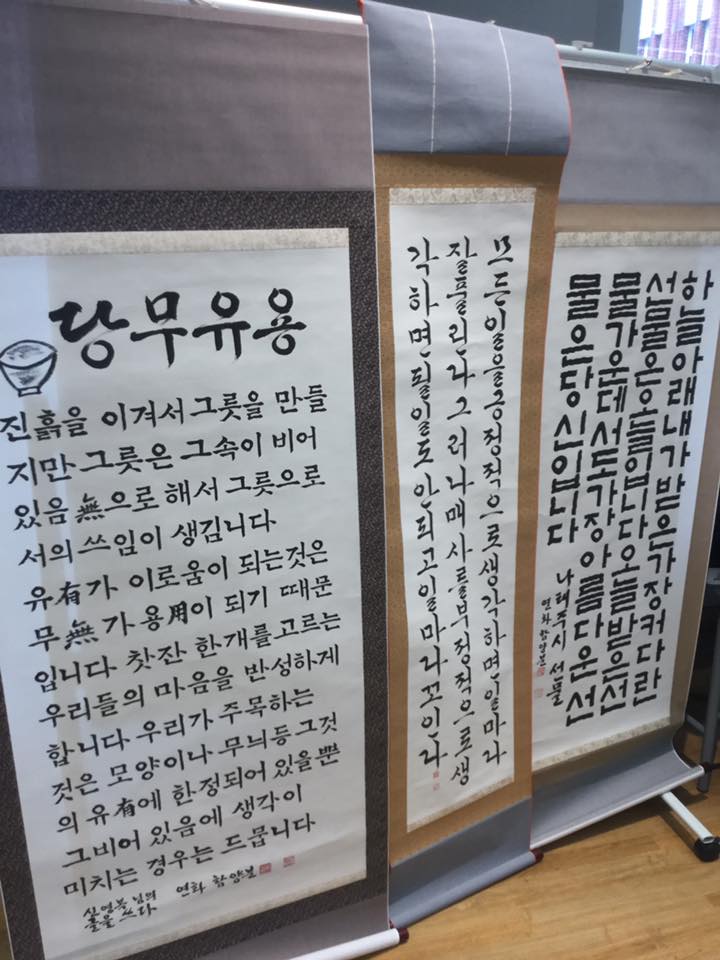 당무유용
진흙을 이겨서 그릇을 만들
지만 그릇은 그속이 비어
있음 無으로 해서 그릇으로
서의 쓰임이 생깁니다
유有가 이로움이 되는것은
무無가 용用이 되기 때문
입니다 찻잔 한개를고르는
우리들의 마음을 반성하게
합니다 우리가 주목하는
것은 모양이나 무늬등 그것
의 유有에 한정되어 있을뿐
그비어 있음에 생각이
미치는 경우는 드뭅니다
신영복 님의
글을 쓰다
연화 함양분
모든일을긍정적으로생각하면일마다
잘풀린다그러나매사를부정적으로생
각하면될일도안되고일마다꼬인다
하늘아래내가받은가장커다란
선물은오늘입니다오늘받은선
물가운데서도가장아름다운선
물은당신입니다
나태주시 선물
연화 함양분